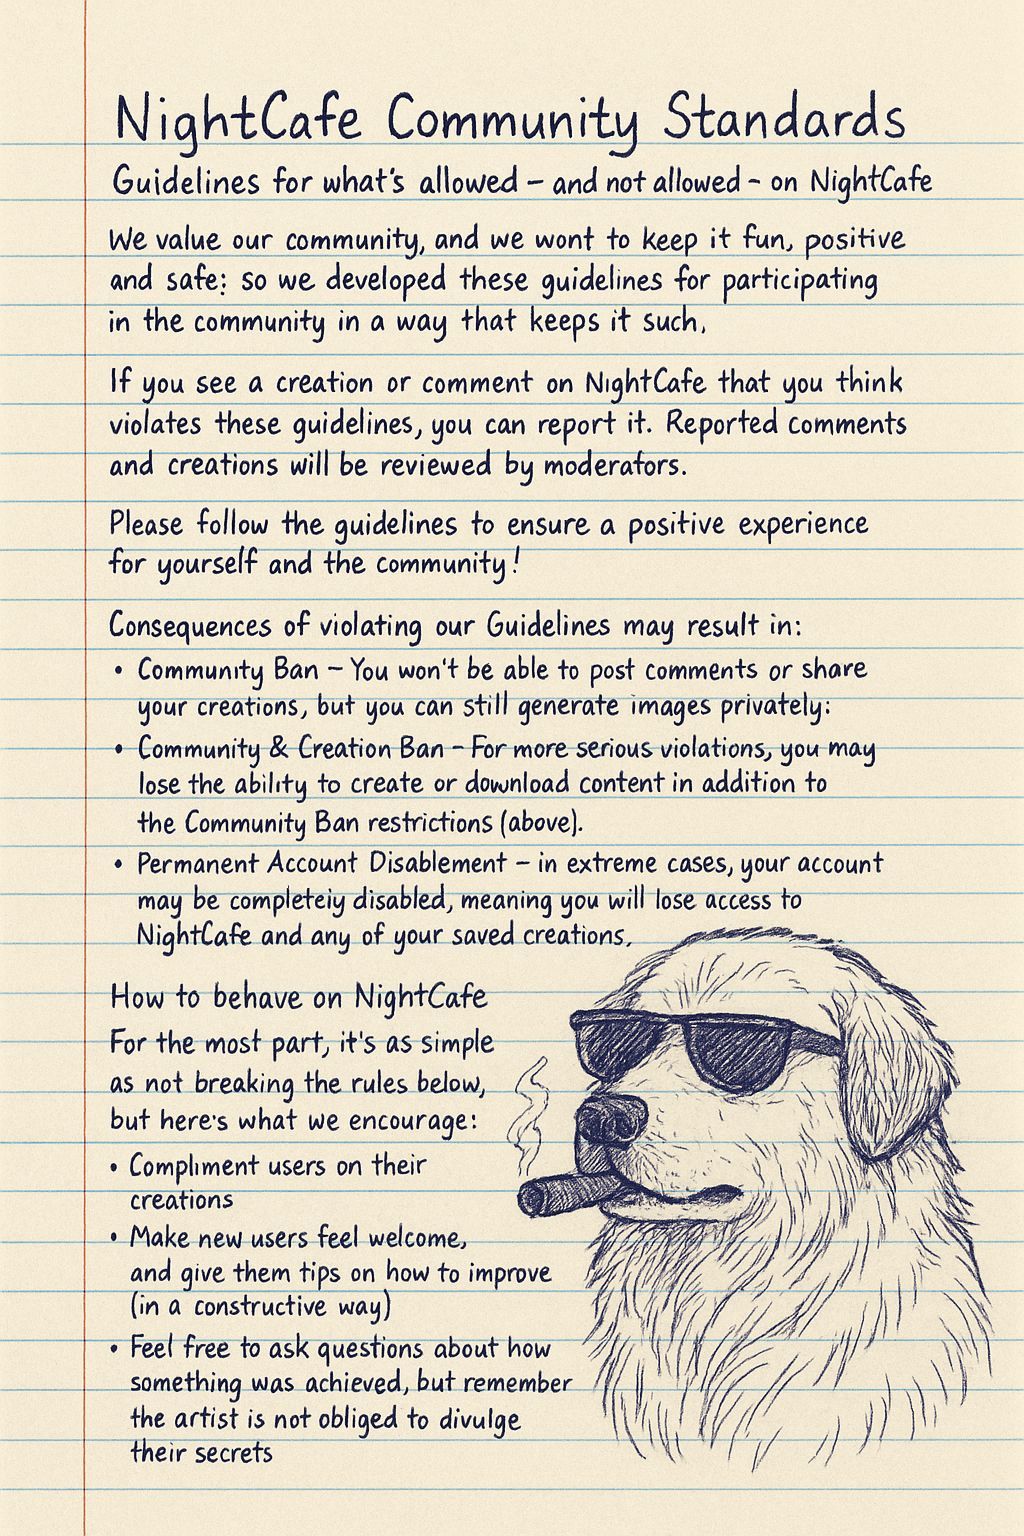 NightCafe Community Standards
Guidelines for what's allowed – and not allowed – on NightCafe
We value our community, and we wont to keep it fun, positive
and safe; so we developed these guidelines for participating
in the community in a way that keeps it such,
If you see a creation or comment on NightCafe that you think
violates these guidelines, you can report it. Reported comments
and creations will be reviewed by moderators.
Please follow the guidelines to ensure a positive experience
for yourself and the community!
Consequences of violating our Guidelines may result in:
• Community Ban – You won't be able to post comments or share
your creations, but you can still generate images privately:
• Community & Creation Ban – For more serious violations, you may
lose the ability to create or download content in addition to
the Community Ban restrictions (above).
• Permanent Account Disablement – in extreme cases, your account
may be completeiy disabled, meaning you will lose access to
NightCafe and any of your saved creations,
How to behave on NightCafe
For the most part, it's as simple
as not breaking the rules below,
but here's what we encourage:
• Compliment users on their
creations
• Make new users feel welcome,
and give them tips on how to improve
(in a constructive way)
• Feel free to ask questions about how
something was achieved, but remember
the artist is not obliged to divulge
their secrets